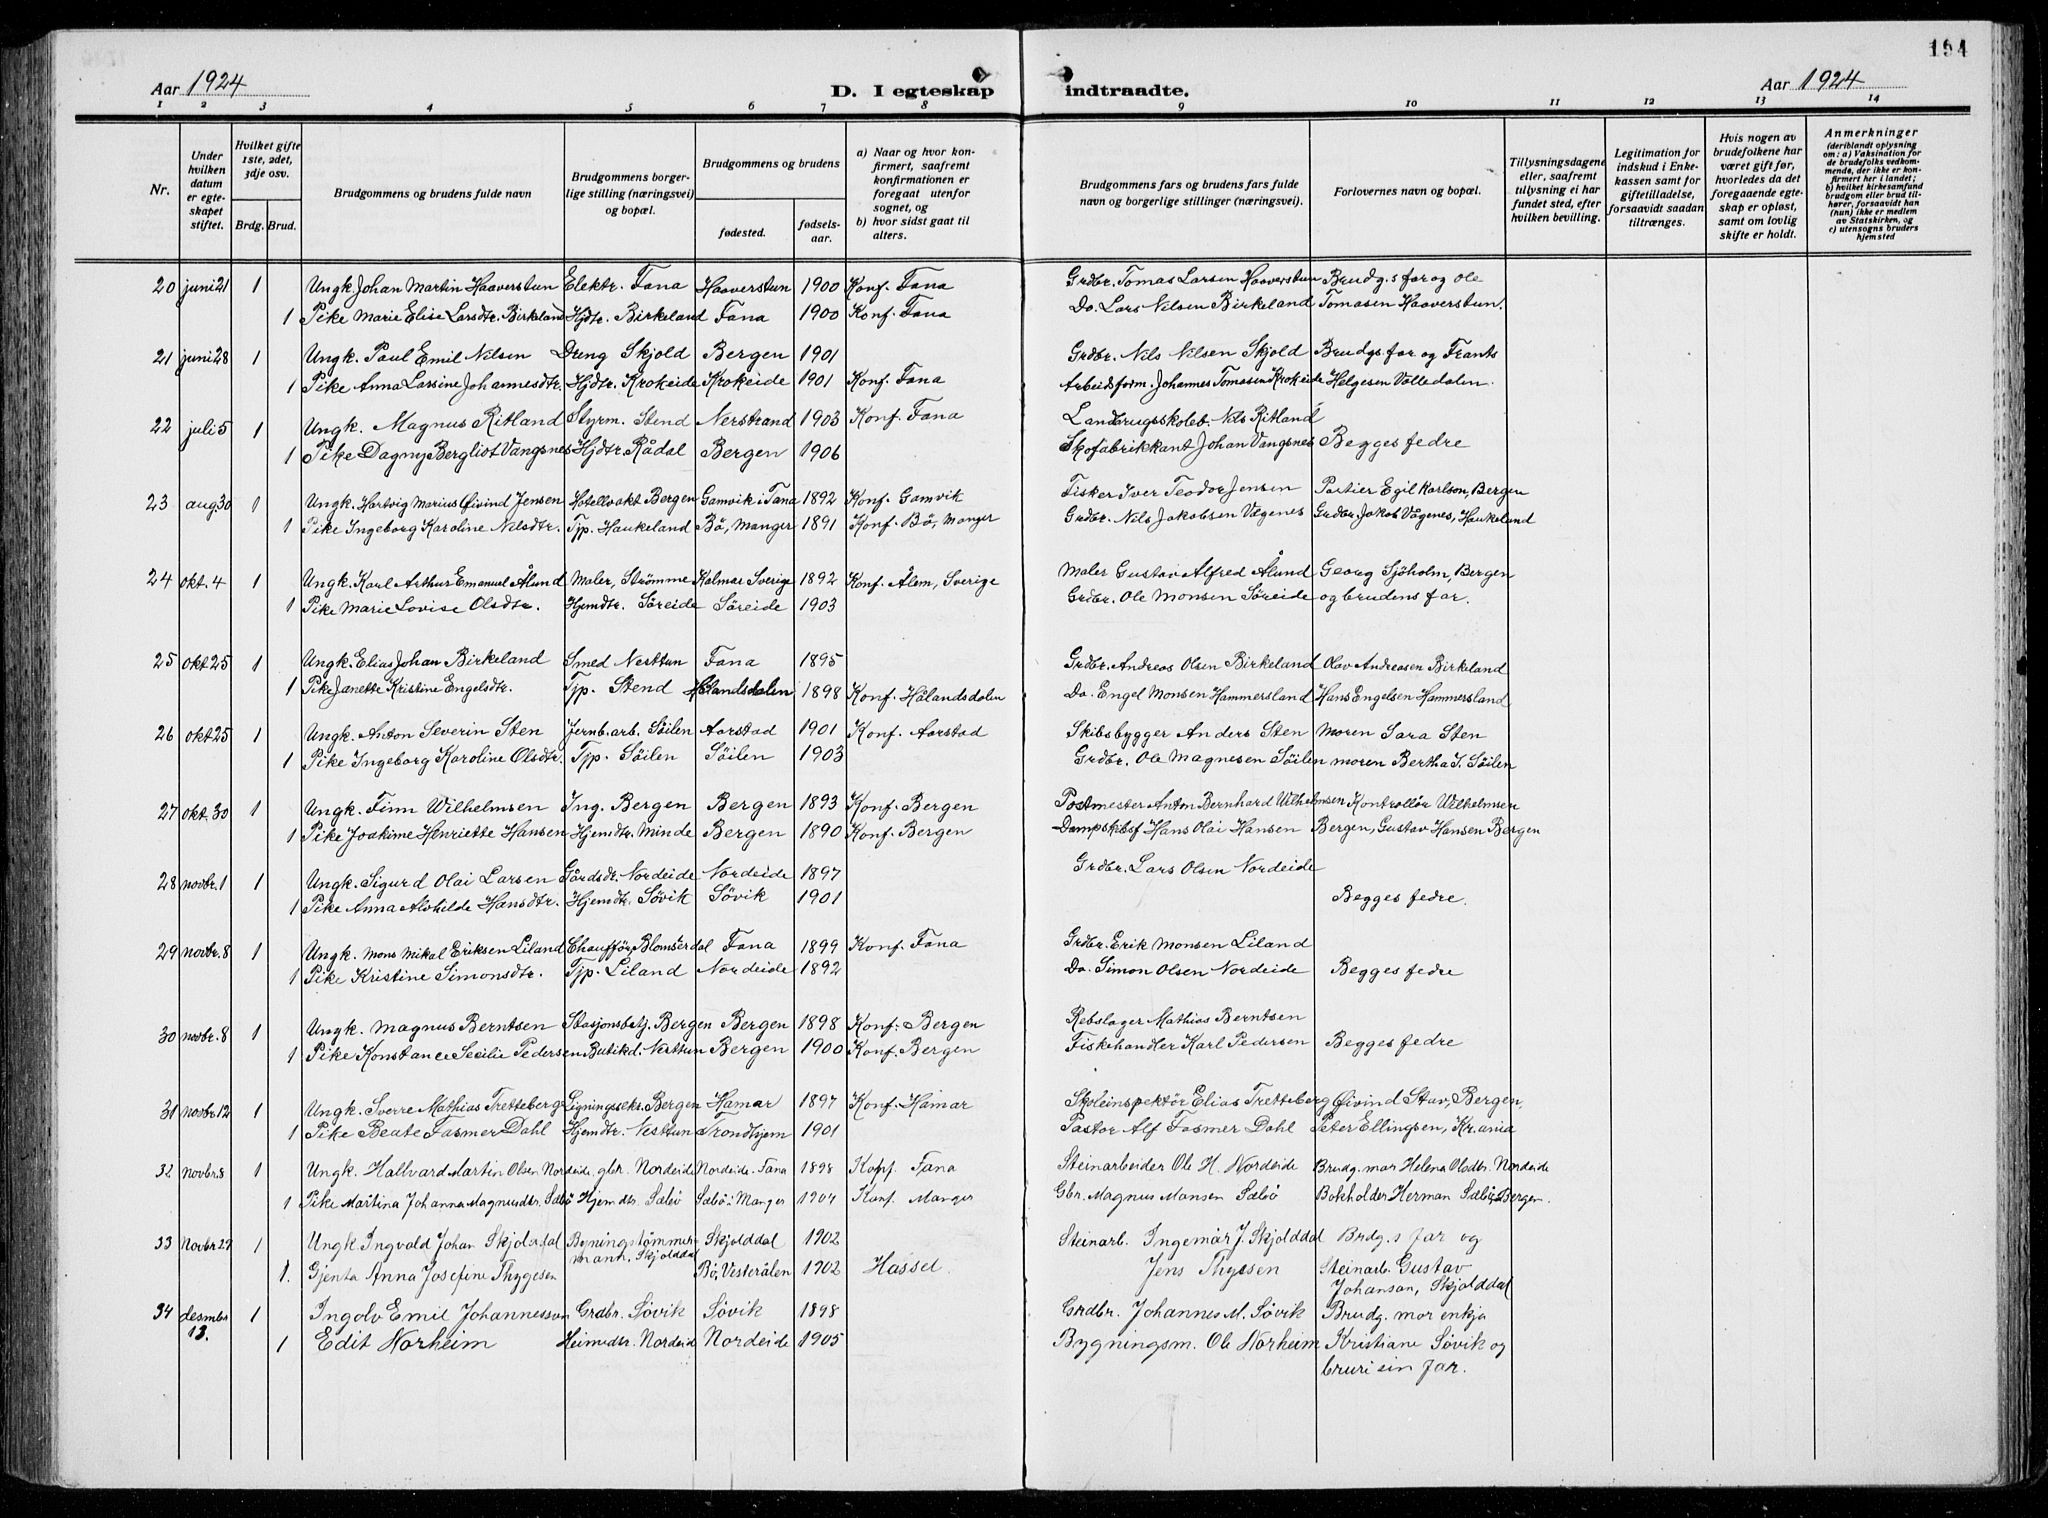 194
Aar 1924
D. I egteskap indtraadte.
Aar 1924
1 2 3 4 5 6 7 8 9 10 11 12 13 14
Nr.
Under hvilken datum er egteskapet stiftet.
Hvilket gifte 1ste, 2det, 3dje osv.
Brdg. Brud.
Brudgommens og brudens fulde navn
Brudgommens borgerlige stilling (næringsvei) og bopæl.
Brudgommens og brudens
fødested.
fødselsaar.
a) Naar og hvor konfirmert, saafremt konfirmationen er foregaat utenfor sognet, og
b) hvor sidst gaat til alters.
Brudgommens fars og brudens fars fulde navn og borgerlige stillinger (næringsvei).
Forlovernes navn og bopæl.
Tillysningsdagene eller, saafremt tillysning ei har fundet sted, efter hvilken bevilling.
Legitimation for indskud i Enkekassen samt for giftetilladelse, forsaavidt saadan tiltrænges.
Hvis nogen av brudefolkene har været gift før, hvorledes da det foregaaende egteskap er opløst, samt om lovlig skifte er holdt.
Anmerkninger (deriblandt oplysning om: a) Vaksination for de brudefolks vedkommende, der ikke er konfirmert her i landet; b) hvilket kirkesamfund brudgom eller brud tilhører, forsaavidt han (hun) ikke er medlem av Statskirken, og c) utensogns bruders hjemsted
20 juni 21 1 Ungk. Johan Martin Haaverstun Elektr. Fana Haaverstun 1900 Konf. Fana Grdbr. Tomas Larsen Haaverstun Brudg.s far og Ole
1 Pike Marie Elise Larsdtr. Birkeland Hjdtr. Birkeland Fana 1900 Konf. Fana Do. Lars Nilsen Birkeland Tomasen Haaverstun.
21 juni 28 1 Ungk. Paul Emil Nilsen Dreng Skjold Bergen 1901 Grdbr. Nils Nilsen Skjold Brudgs far og Frants
1 Pike Anna Larsine Johannesdtr. Hjdtr. Krokeide Krokeide 1901 Konf. Fana Arbeidsform. Johannes Tomasen Krokeide Helgesen Volledalen.
22 juli 5 1 Ungk. Magnus Ritland Styrm. Stend Nerstrand 1903 Konf. Fana Landbrugsskoleb. Nils Ritland
1 Pike Dagny Bergliot Vangsnes Hjdtr. Rådal Bergen 1906 Skofabrikkant Johan Vangsnes Begges fedre
23 aug. 30 1 Ungk. Hartvig Marius Øivind Jensen Hotellvakt Bergen Gamvik i Tana 1892 Konf. Gamvik Fisker Iver Teodor Jensen Portier Egil Karlson, Bergen
1 Pike Ingeborg Karoline Nelsdtr. Tjp. Haukeland Bø, Manger 1891 Konf. Bø, Manger Grdbr. Nils Jakobsen Vågenes Grdbr. Jakob Vågenes, Haukeland
24 okt. 4 1 Ungk. Karl Arthur Emanuel Ålund Maler, Strømme Kalmar Sverige 1892 Konf. Ålem, Sverige Maler Gustav Alfred Ålund Georg Sjöholm, Bergen
1 Pike Marie Lovise Olsdtr. Hjemdtr. Søreide Søreide 1903 Grdbr. Ole Monsen Søreide og brudens far.
25 okt. 25 1 Ungk. Elias Johan Birkeland Smed Nesttun Fana 1895 Grdbr. Andreas Olsen Birkeland Olav Andreasen Birkeland
1 Pike Janette Kristine Engelsdtr. Tjp. Stend Hålandsdalen 1898 Konf. Hålandsdalen Do. Engel Monsen Hammersland Hans Engelsen Hammersland
26 okt 25 1 Ungk. Anton Severin Sten Jernb.arb. Söilen Aarstad 1901 Konf. Aarstad Skibsbygger Anders Sten moren Sara Sten
1 Pike Ingeborg Karoline Olsdtr. Tjp. Söilen Söilen 1903 Grdbr. Ole Magnesen Söilen moren Bertha I. Söilen
27 okt. 30 1 Ungk. Finn Wilhelmsen Ing. Bergen Bergen 1893 Konf. Bergen Postmester Anton Bernhard Wilhelmsen Kontrollør Wilhelmsen
1 Pike Joakime Henriette Hansen Hjemdtr. Minde Bergen 1890 Konf. Bergen Dampskibsf Hans Olai Hansen Bergen, Gustav Hansen Bergen
28 novbr. 1 1 Ungk. Sigurd Olai Larsen Gårdsdr. Nordeide Nordeide 1897 Grdbr. Lars Olsen Nordeide
1 Pike Anna Alvhilde Hansdtr. Hjemdtr. Søvik Søvik 1901 Begges fedre.
29 novbr. 8 1 Ungk. Mons Mikal Eriksen Liland Chauffør, Blomsterdal Fana 1899 Konf. Fana Grdbr. Erik Monsen Liland
1 Pike Kristine Simonsdtr. Tjp. Liland Nordeide 1892 Do. Simon Olsen Nordeide Begges fedre
30 novbr. 8 1 Ungk. Magnus Berntsen Stasjonsbetj. Bergen Bergen 1898 Konf. Bergen Rebslager Mathias Berntsen
1 Pike Konstance Secilie Pedersen Butikd. Nesttun Bergen 1900 Konf. Bergen Fiskehandler Karl Pedersen Begges fedre
31 novbr. 12 1 Ungk. Sverre Mathias Tretteberg Ligningssekr. Bergen Hamar 1897 Konf. Hamar Skoleinspektør Elias Tretteberg Øivind Stav, Bergen,
1 Pike Beate Fasmer Dahl Hjemdtr. Nesttun Trondhjem 1901 Pastor Alf Fasmer Dahl Peter Ellingsen, Kr.ania
32 novbr. 8 1 Ungk. Hallvard Martin Olsen Nordeide, gbr. Nordeide Nordeide. Fana 1898 Konf. Fana Steinarbeider Ole H. Nordeide Brudg. mor Helena Olsdtr. Nordeide
1 Pike Martina Johanna Magnusdtr. Sæbø Hjemdtr. Sæbø Sæbø i Manger 1904 Konf. Manger Gbr. Magnus Monsen Sæbø Bokholder Herman Sæbø, Bergen.
33 Novbr 29 1 Ungk Ingvald Johan Skjolddal Bygningstømmermann, Skjolddal Skjolddal 1902 Steinarb. Ingemár J. Skjolddal Brdg.s far og
1. Gjenta Anna Josefine Thygesen Bø, Vesterålen 1902 Hassel Jens Thyssen Steinarb. Gustav
Johanson, Skjolddal
34 desmbr 13. 1 Ingolv Emil Johannesson Grdbr. Søvik Søvik 1898 Grdbr. Johannes M. Søvik Brudg. mor enkja
1 Edit Norheim Heimedtr. Nordeid Nordeide 1905 Bygningsm. Ole Norheim Kristiane Søvik og
bruri sin far.